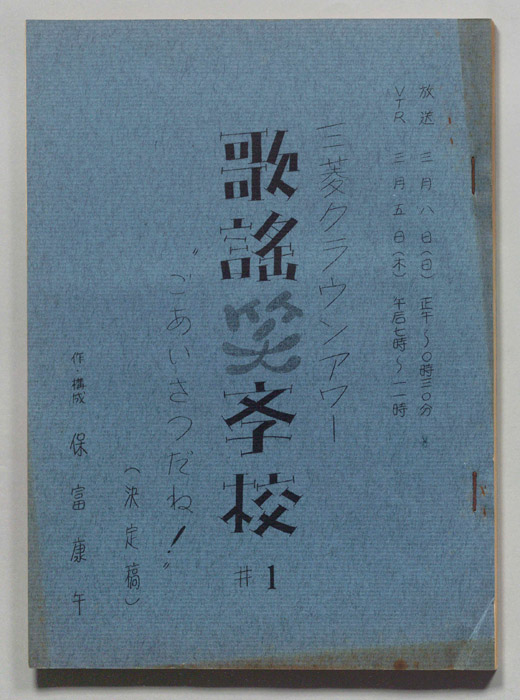 放送　三月八日(日)　正午〜〇時三〇分
VTR　三月五日(木)　午后七時〜一一時
三菱クラウンアワー
歌謡笑学校 #1
"ごあいさつだね！"
(決定稿)
作・構成　保富康午